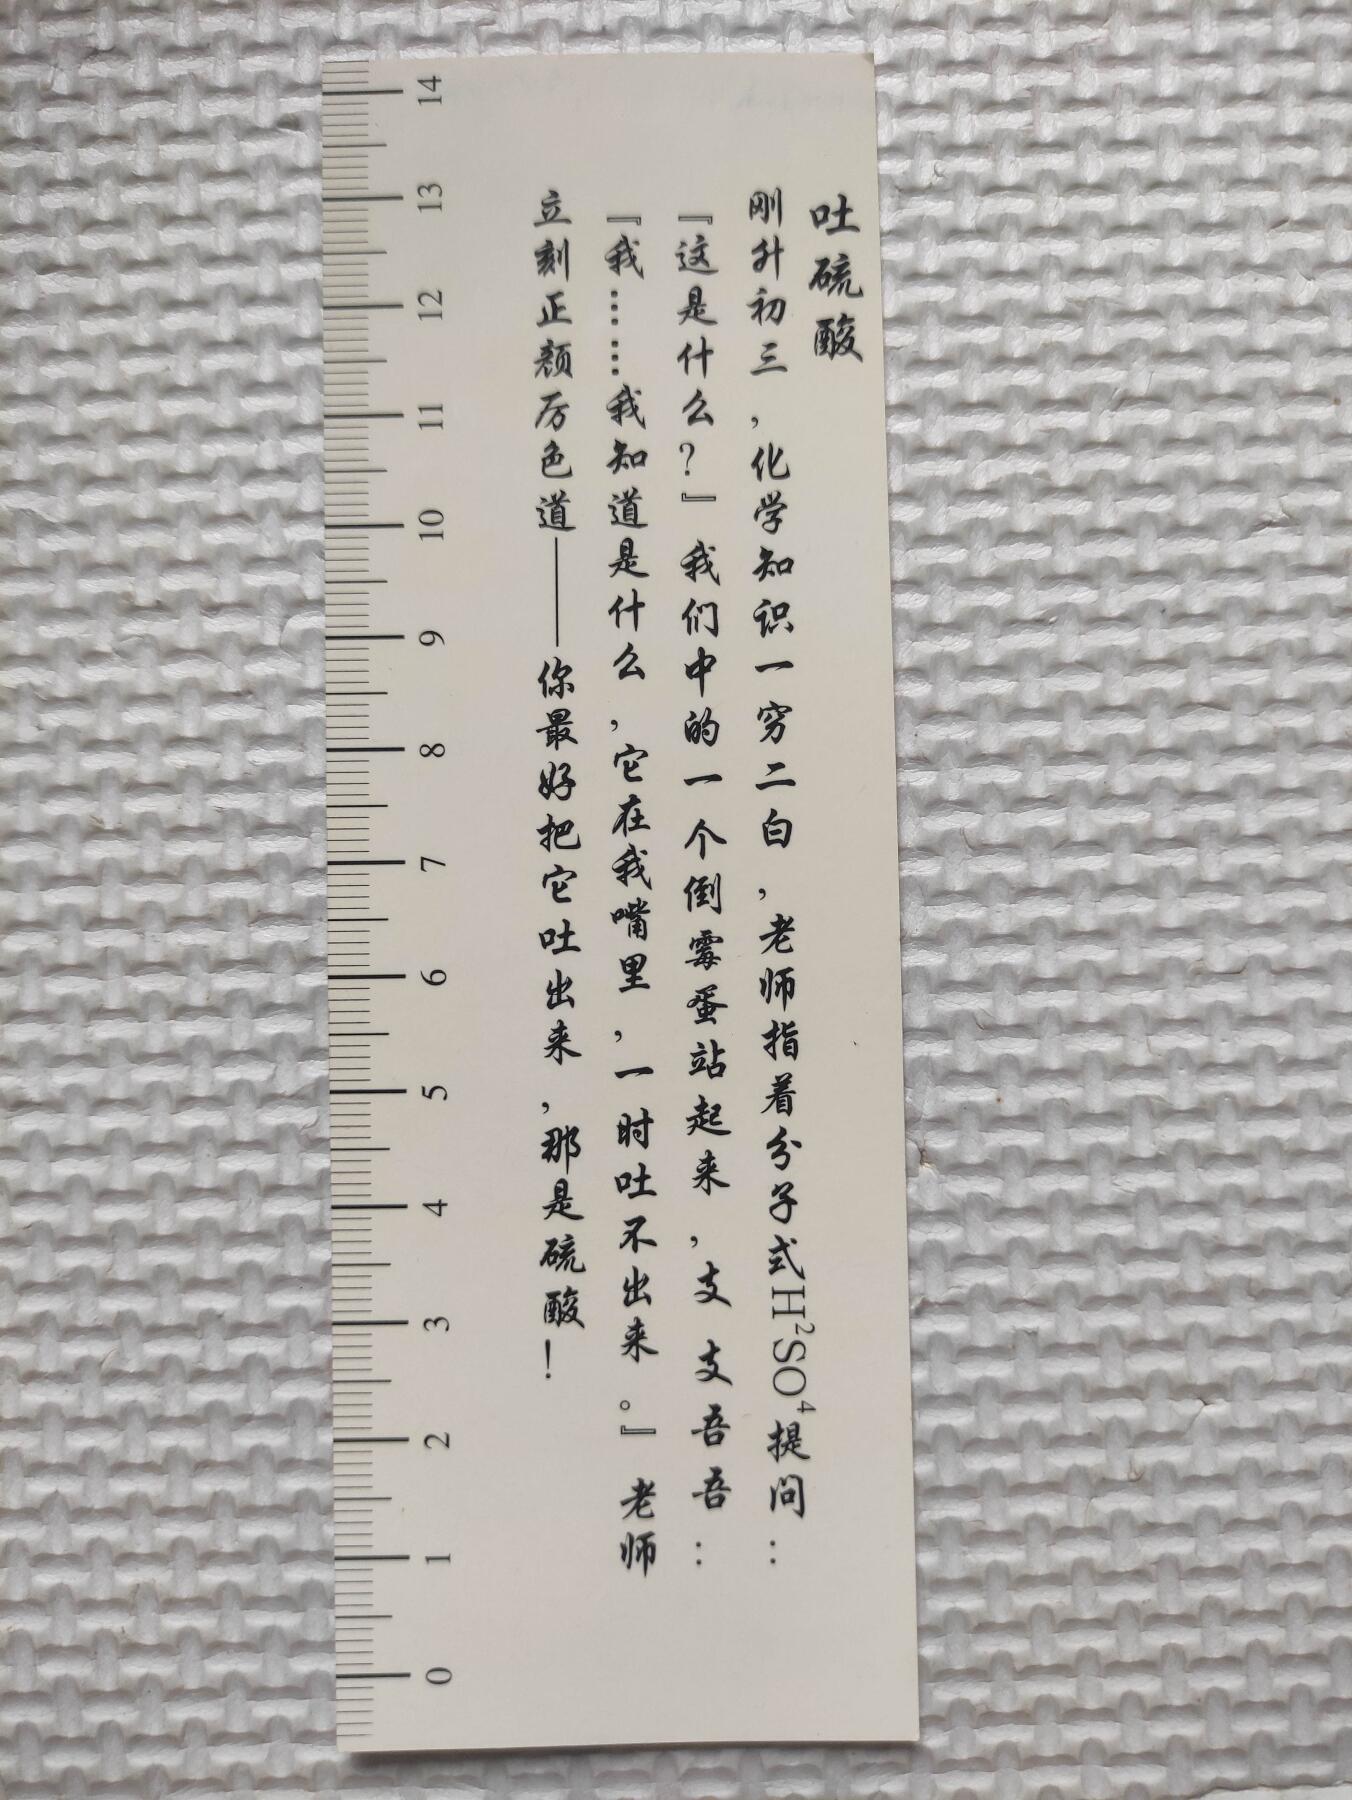 吐硫酸
刚升初三，化学知识一穷二白，老师指着分子式H²SO⁴提问：
『这是什么？』我们中的一个倒霉蛋站起来，支支吾吾：
『我……我知道是什么，它在我嘴里，一时吐不出来。』老师
立刻正颜厉色道——你最好把它吐出来，那是硫酸！
14
13
12
11
10
9
8
7
6
5
4
3
2
1
0